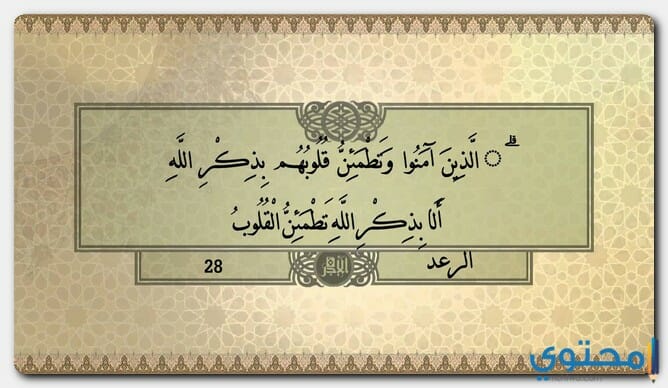 ۗ الَّذِينَ آمَنُوا وَتَطْمَئِنُّ قُلُوبُهُم بِذِكْرِ اللَّهِ
أَلَا بِذِكْرِ اللَّهِ تَطْمَئِنُّ الْقُلُوبُ
الرعد
28
محتوي